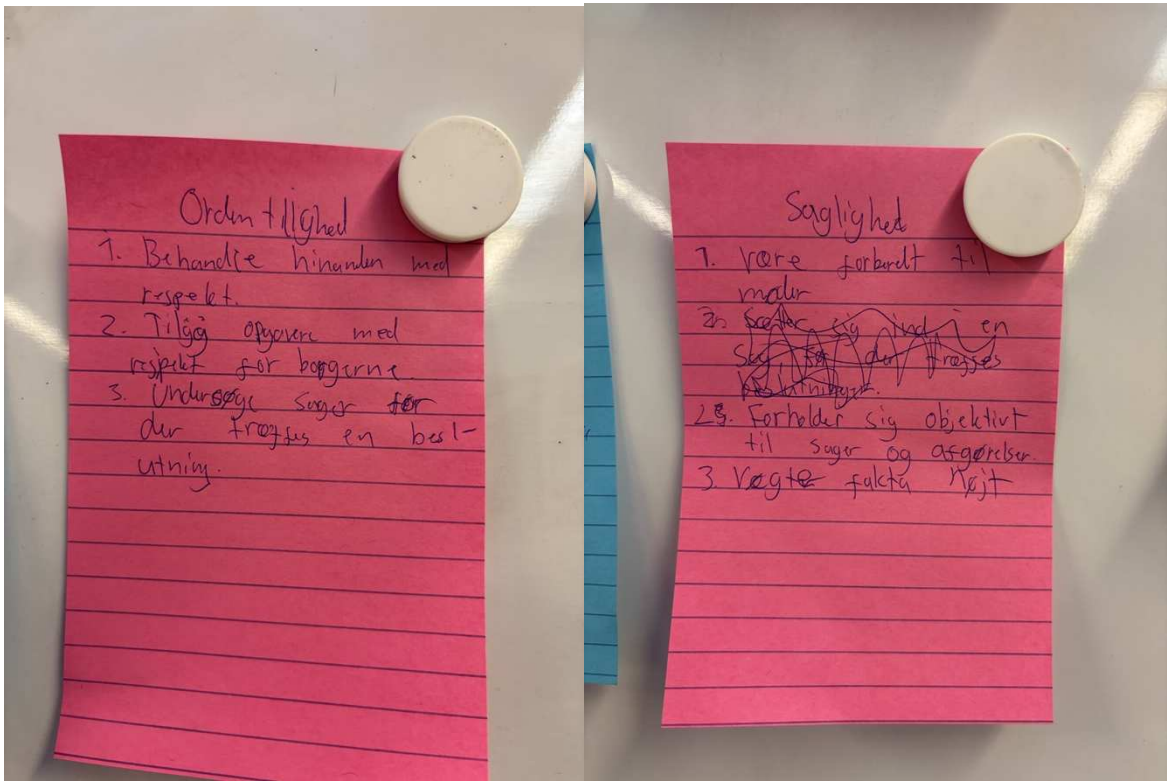 Ordentlighed
1. Behandle hinanden med
respekt.
2. Tilgå opgavere med
respekt for borgerne.
3. Undersøge sager før
der træffes en besl-
utning.
Saglighed
1. være forberedt til
møder
2. Sætter sig ind i en
sag før der træffes
beslutninger.
2. Forholder sig objektivt
til sager og afgørelser.
3. Vægte fakta højt